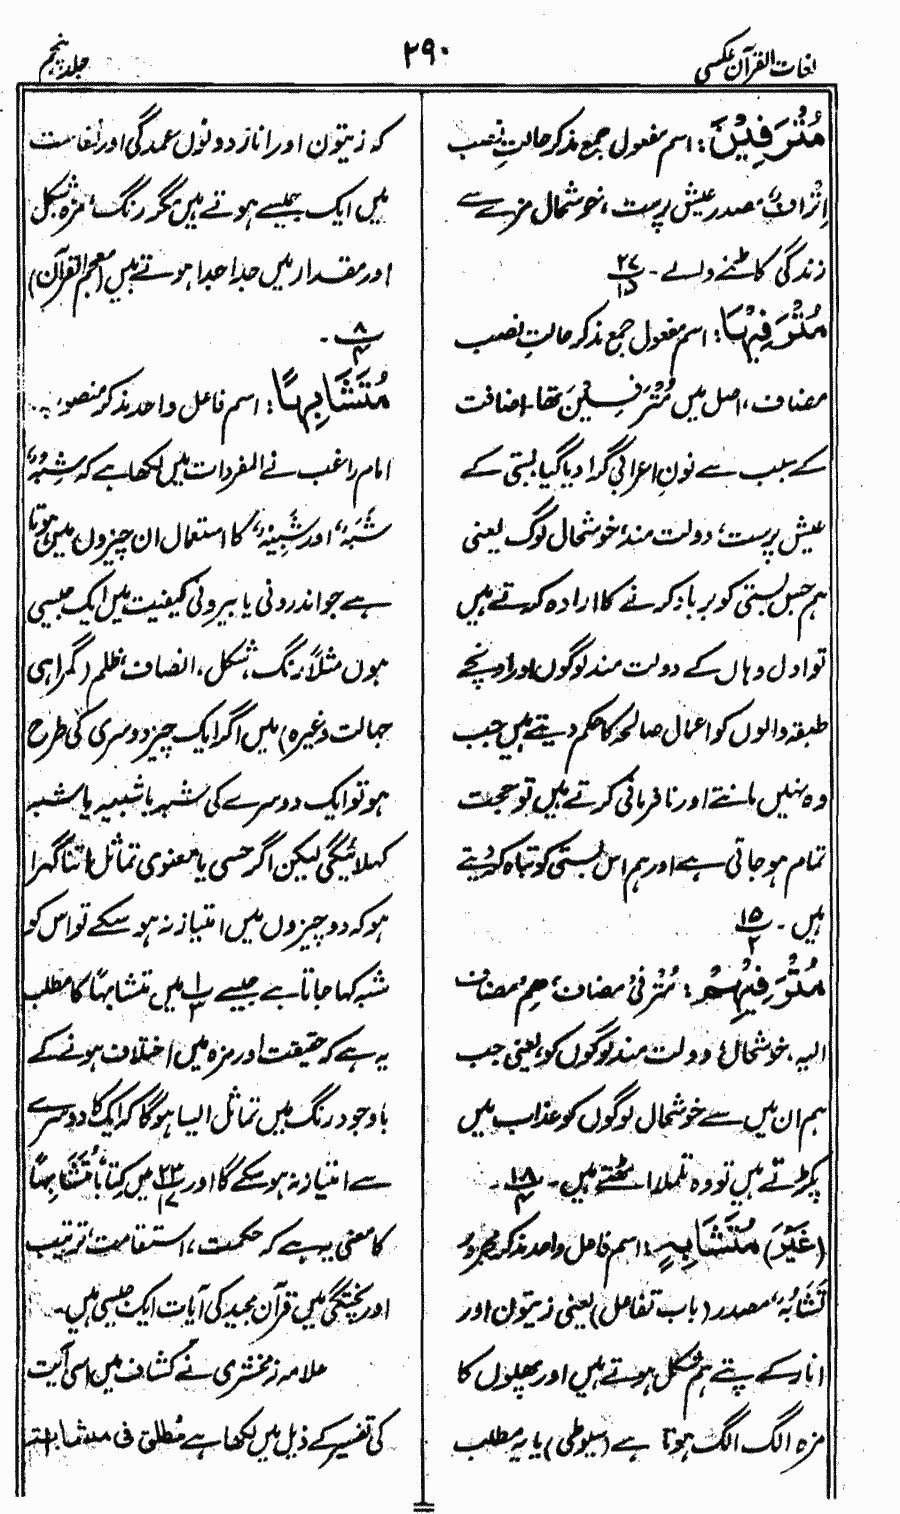 لغات القرآن عکسی
۲۹۰
جلد پنجم
مُتْرَفِیْنَ: اسم مفعول جمع مذکر حالتِ نصب
اِتْرَافٌ، مصدر عیش پرست، خوشحال مزے سے
زندگی کاٹنے والے ۔ ۲۷/۱۵
مُتْرَفِیْہَا: اسم مفعول جمع مذکر حالتِ نصب
مضاف، اصل میں مُتْرَفِیْنَ تھا۔ اضافت
کے سبب سے نونِ اعرابی گرا دیا گیا بستی کے
عیش پرست، دولت مند، خوشحال لوگ یعنی
ہم جس بستی کو برباد کرنے کا ارادہ کرتے ہیں
تو اول وہاں کے دولت مند لوگوں اور اونچے
طبقہ والوں کو اعمال صالحہ کا حکم دیتے ہیں جب
وہ نہیں مانتے اور نافرمانی کرتے ہیں تو حجت
تمام ہو جاتی ہے اور ہم اس بستی کو تباہ کر دیتے
ہیں ۔ ۱۵/۲
مُتْرَفِیْہِمْ: مُتْرَفِیْ مضاف، ھِمْ مضاف
الیہ، خوشحال، دولت مند لوگوں کو، یعنی جب
ہم ان میں سے خوشحال لوگوں کو عذاب میں
پکڑتے ہیں تو وہ تلملا اٹھتے ہیں ۔ ۱۸/۴ ۔
(غَیْرَ) مُتَشَابِہٍ: اسم فاعل واحد مذکر مجرور
تَشَابُہٌ، مصدر (باب تفاعل) یعنی زیتون اور
انار کے پتے ہم شکل ہوتے ہیں اور پھلوں کا
مزہ الگ الگ ہوتا ہے (سیوطی) یا یہ مطلب
کہ زیتون اور انار دونوں عمدگی اور نفاست
میں ایک جیسے ہوتے ہیں مگر رنگ، مزہ شکل
اور مقدار میں جدا جدا ہوتے ہیں (معجم القرآن)
۸/۴ ۔
مُتَشَابِہًا: اسم فاعل واحد مذکر منصوب
امام راغب نے المفردات میں لکھا ہے کہ شِبْہٌ،
شَبَہٌ، اور شَبِیْہٌ، کا استعمال ان چیزوں میں ہوتا
ہے جو اندرونی یا بیرونی کیفیت میں ایک جیسی
ہوں مثلاً رنگ، شکل، انصاف، ظلم (گمراہی
جہالت وغیرہ) میں اگر ایک چیز دوسری کی طرح
ہو تو ایک دوسرے کی شبہ یا شبیہ یا شبہ
کہلائیگی لیکن اگر حسی یا معنوی تماثل اتنا گہرا
ہو کہ دو چیزوں میں امتیاز نہ ہو سکے تو اس کو
شبہ کہا جاتا ہے جیسے ۱/۳ میں متشابہاً کا مطلب
یہ ہے کہ حقیقت اور مزہ میں اختلاف ہونے کے
باوجود رنگ میں تماثل ایسا ہوگا کہ ایک کا دوسرے
سے امتیاز نہ ہو سکے گا اور ۲۳/۱۷ میں کِتَابًا مُّتَشَابِہًا
کا معنی یہ ہے کہ حکمت، استقامت، ترتیب
اور پختگی میں قرآن مجید کی آیات ایک جیسی ہیں۔
علامہ زمخشری نے کشاف میں اسی آیت
کی تفسیر کے ذیل میں لکھا ہے مُطْلَق فی مشابہتہ